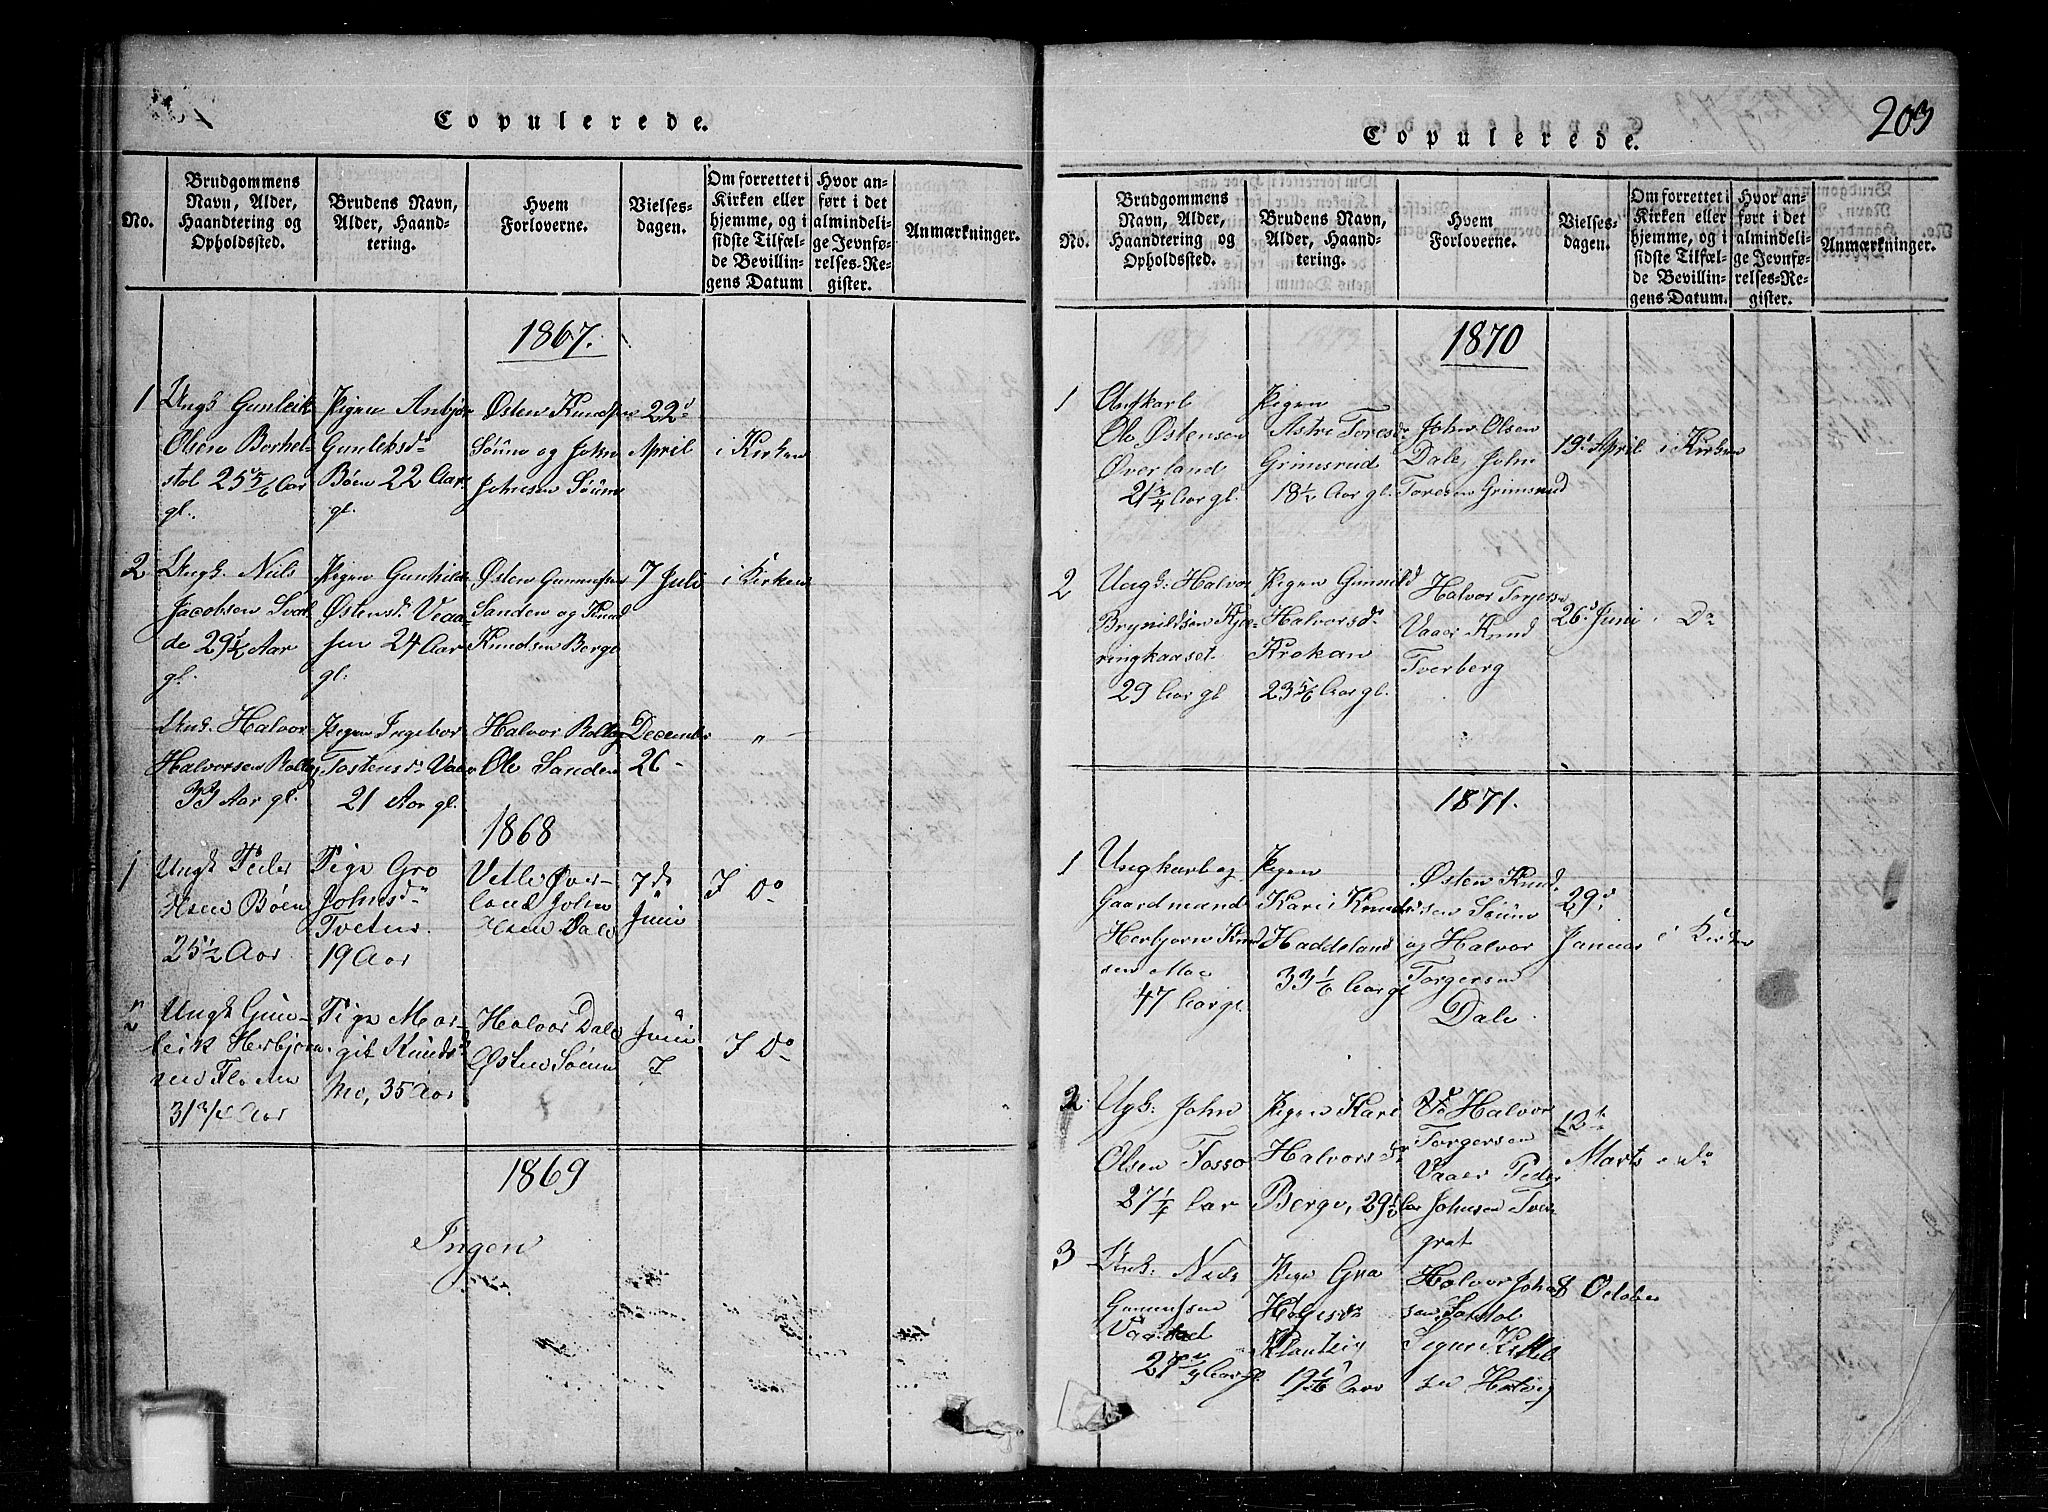 Copulerede.
No.
Brudgommens
Navn, Alder,
Haandtering og
Opholdssted.
Brudens Navn,
Alder, Haand-
tering.
Hvem
Forloverne.
Vielses-
dagen.
Om forrettet i
Kirken eller
hjemme, og i
sidste Tilfæl-
de Bevillin-
gens Datum
Hvor an-
ført i det
almindeli-
ge Jevnfø-
relses-Re-
gister.
Anmærkninger.
1867.
1
Ungk Gunleik
Olsen Berhel-
stol 25 5/6 Aar
gl.
Pigen Anbjør
Gunleksdr
Bøen 22 Aar
gl.
Østen Knudsen
Søum og John
Johnsen Søum
22d
April
i Kirken
2
Ungk. Nils
Jacobsen
de 29 1/2 Aar
gl.
Pigen Gunhild
Østensdr Vaa-
sen 24 Aar
gl.
Østen Gunnufsen
Sanden og Knud
Knudsen Berge
7 Juli
i Kirken
Unk. Halvor
Halvorsen
33 Aar gl.
Pigen Ingebor
Tostensdr Vaa
21 Aar gl.
Halvor
Ole Sanden
Decembr
26
"
1868
1
Ungk Peder
Hsen Bøen
25 1/2 Aar
Pige Gro
Johnsdr
Tveten
19 Aar
Vetle Øver-
land John
Hsen Dale
7de
Juni
I Do
2
Ungk Gun-
leik Herbjørn
sen
31 3/4 Aar
Pige Mar-
git Knudsd
Mo, 35 Aar
Halvor Dale
Østen Søum
Juni
7
I Do
1869
Ingen
203
Copulerede.
No.
Brudgommens
Navn, Alder,
Haandtering og
Opholdssted.
Brudens Navn,
Alder, Haand-
tering.
Hvem
Forloverne.
Vielses-
dagen.
Om forrettet i
Kirken eller
hjemme, og i
sidste Tilfæl-
de Bevillin-
gens Datum.
Hvor an-
ført i det
almindeli-
ge Jevnfø-
relses-Re-
gister.
Anmærkninger.
1870
1
Ole Østensen
Øverland
21 3/4 Aar gl.
Pigen
Astri Toresdr
Grimsrud
18 1/2 Aar gl.
John Olsen
Dale, John
Toresen Grimsrud
19d April
i Kirken
2
Ungk: Halvor
Brynildsen Kjæ-
ringkaaset.
29 Aar gl
Pigen Gunnild
Halvorsdr
Krokan
23 5/6 Aar gl.
Halvor Torjersen
Vaaer Knud
Tverberg
26d Juni
i Do
1871.
1
Ungkarl og
Gaardmand
Herbjørn Knud
sen Moe
47 Aar gl.
Pigen
Kari Knudsd
Haddeland
33 1/6 Aar gl
Østen Knud-
sen Søum
og Halvor
Torgersen
Dale
29d
Januar
i Kirken
2.
Ugk: John
Olsen Fosso
27 1/4 Aar
Pigen Kari
Halvorsdr
Berge, 29 1/6 Aar
Halvor
Torgersen
Vaaer Peder
Johnsen Tver
grat
12te
Marts
i do
3
Unk: Nils
Gunnufsen
Aar gl.
Pigen Gro
Helgesdr
19 1/6 Aar
Halvor Johns
sen
8 October